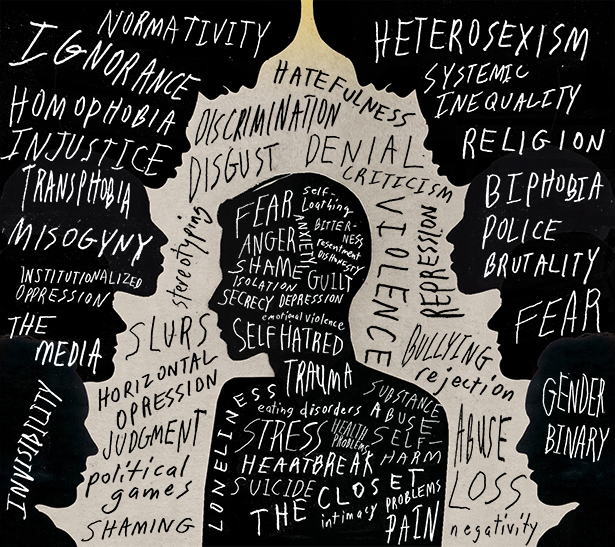 NORMATIVITY
IGNORANCE
HOMOPHOBIA
INJUSTICE
TRANSPHOBIA
MISOGYNY
INSTITUTIONALIZED
OPPRESSION
THE
MEDIA
INVISIBILITY
HETEROSEXISM
SYSTEMIC
INEQUALITY
RELIGION
BIPHOBIA
POLICE
BRUTALITY
FEAR
GENDER
BINARY
HATEFULNESS
DISCRIMINATION
DISGUST
DENIAL
CRITICISM
stereotyping
VIOLENCE
REPRESSION
SLURS
HORIZONTAL
OPRESSION
JUDGMENT
political
games
SHAMING
BULLYING
rejection
ABUSE
LOSS
negativity
FEAR
self-
Loathing
ANXIETY
BITTER-
NESS
ANGER
resentment
DISHONESTY
SHAME
GUILT
ISOLATION
SECRECY DEPRESSION
emotional violence
SELF HATRED
TRAUMA
LONELINESS
eating disorders
SUBSTANCE
ABUSE
STRESS
HEALTH
PROBLEMS
SELF-
HARM
HEARTBREAK
SUICIDE
THE CLOSET
intimacy
PROBLEMS
PAIN